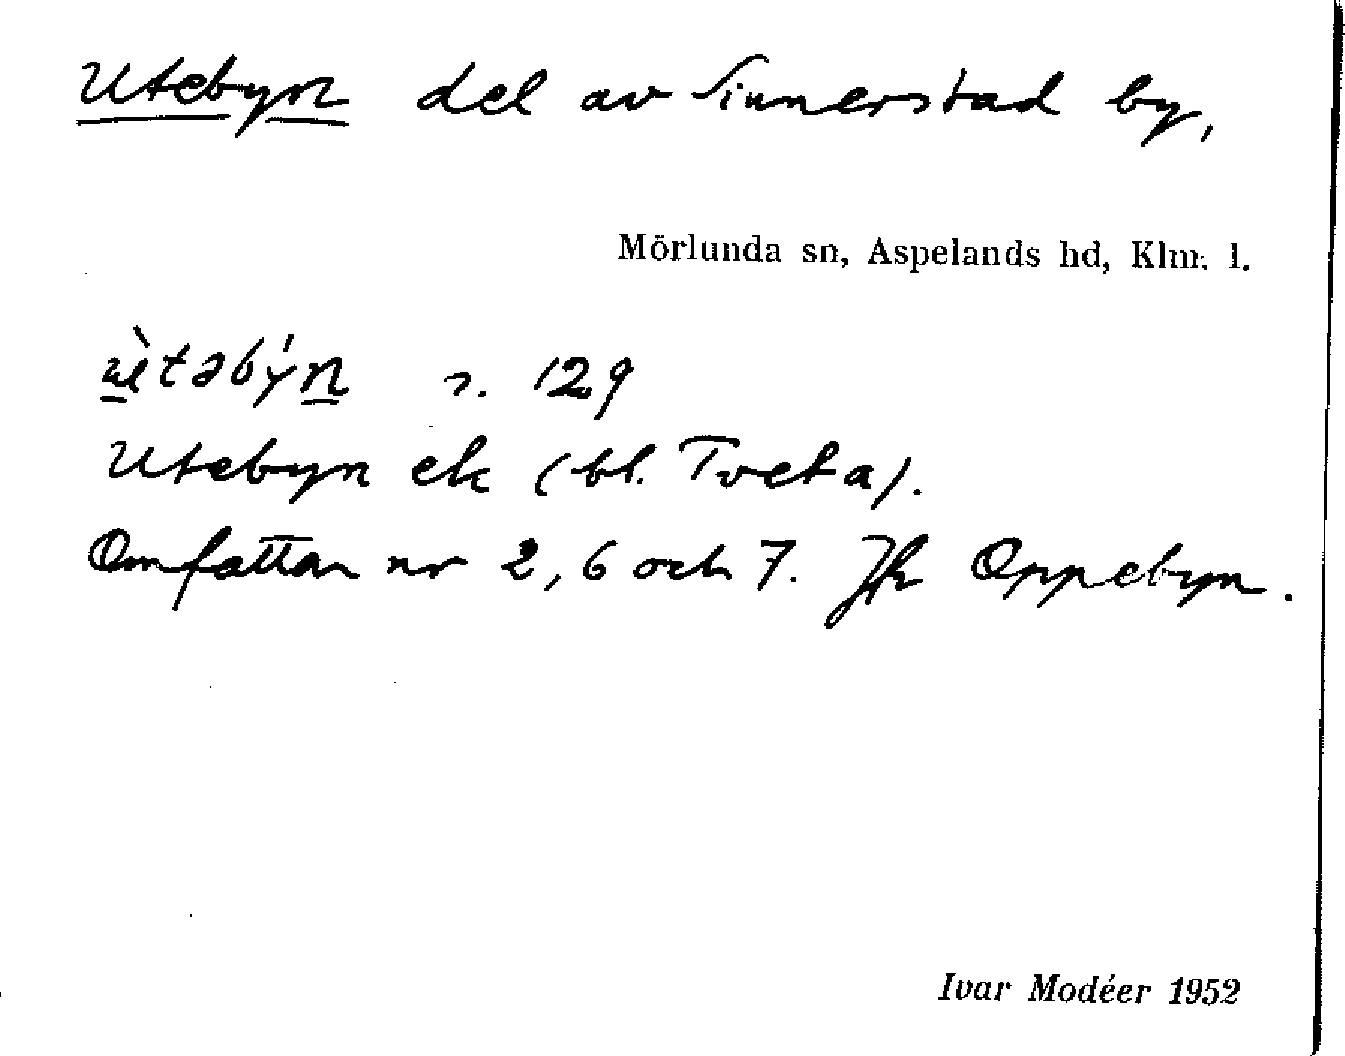 Utebyn del av Sinnerstad by,
Mörlunda sn, Aspelands hd, Klm. l.
ùtəbýn 129
Utebyn ek (bl. Tveta).
Omfattar nr 2, 6 och 7. Jfr Oppebyn.
Ivar Modéer 1952